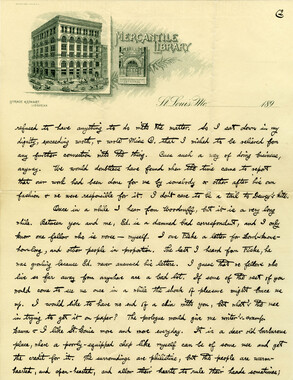 MERCANTILE
LIBRARY
St. Louis, Mo. 189
refused to have anything to do with the matter. So I sat down in my
dignity, speeding wroth, & wrote Miss C. that I wished to be relieved for
any further connection with the thing. Queer such a way of doing business,
anyway. We would doubtless have found when the time came to report
that our work had been done for us by somebody or other after his own
fashion & we were responsible for it. I don't care to be a tail to Benny's kite.
Once in a while I hear from Terrborough, but it is a very long
while between you and me. Ed. is a damned bad correspondent, and I only
know one fellow who is worse — myself. I owe Fiske a letter for
and other people in proportion. The last I heard from Fiske, he
was growling because Ed. never answered his letters. I guess that us fellows who
live so far away from anywhere are a bad lot. If some of the rest of you
would come to see us once in a while the shock of pleasure might brace us
up. I would like to have no end of a chin with you, but what's the use
in trying to get it on paper? The prologue would give me writer's cramp.
Seems I like St. Louis more and more everyday. It is a dear old barbarous
place, where a poorly-equipped chap like myself can be of some use and get
the credit for it. The surroundings are philistine, but the people are warm-
hearted, and open-hearted, and allow their hearts to rule their heads sometimes;